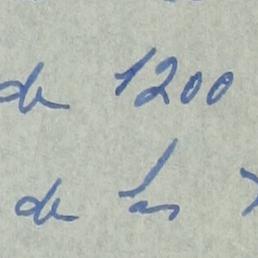 de 1200
de las